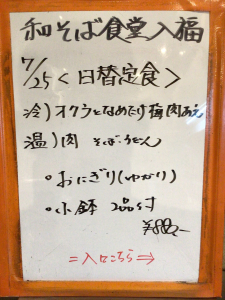 和そば食堂 入福
7/25 <日替定食>
冷) オクラとなめたけ 梅肉あえ
温) 肉 そば・うどん
・おにぎり(ゆかり)
・小鉢 2品付
=入口こちら⇒